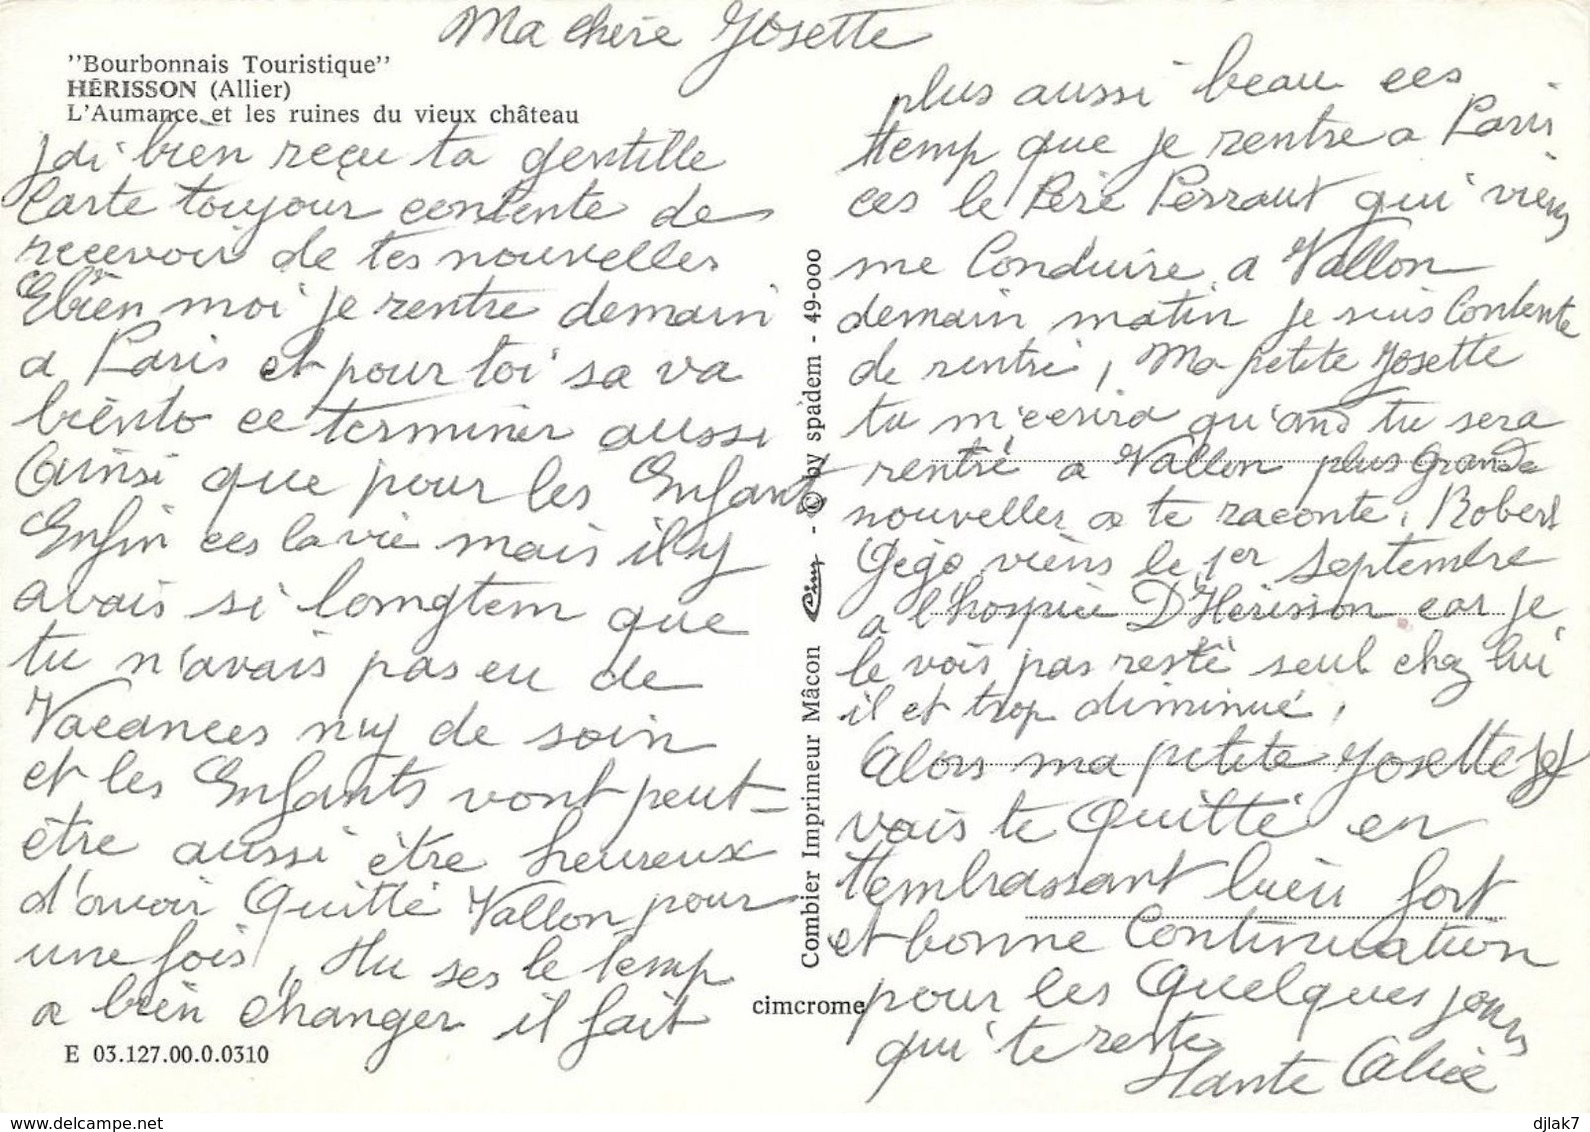 Ma chère Josette
"Bourbonnais Touristique"
HÉRISSON (Allier)
L'Aumance et les ruines du vieux château
J'ai bien reçu ta gentille
Carte toujour contente de
recevoir de tes nouvelles
Ebien moi je rentre demain
a Paris et pour toi sa va
biento ce terminer aussi
Ainsi que pour les Enfants
Enfin ces la vie mais il y
avais si longtem que
tu n'avais pas eu de
Vacances n'y de soin
et les Enfants vont peut-
être aussi être heureux
d'avoir Quitté Vallon pour
une fois, tu ses le temp
a bien changer il fait
plus aussi beau ces
temp que je rentre a Paris
ces le Père Perraut qui viens
me Conduire a Vallon
demain matin je suis Contente
de rentré, Ma petite Josette
tu m'ecrira qu'and tu sera
rentré a Vallon plus Grande
nouvelles a te raconte, Robert
Gégo viens le 1er Septembre
a l'hospice D'Hérisson car je
le vois pas resté seul chez lui
il et trop diminué,
Alors ma petite Josette je
vais te Quitté en
t'embrassant bien fort
et bonne Continuation
pour les Quelques jours
qui te reste
Tante Alice
Combier Imprimeur Mâcon Cim - © by spadem - 49-000
cimcrome
E 03.127.00.0.0310
djlak7